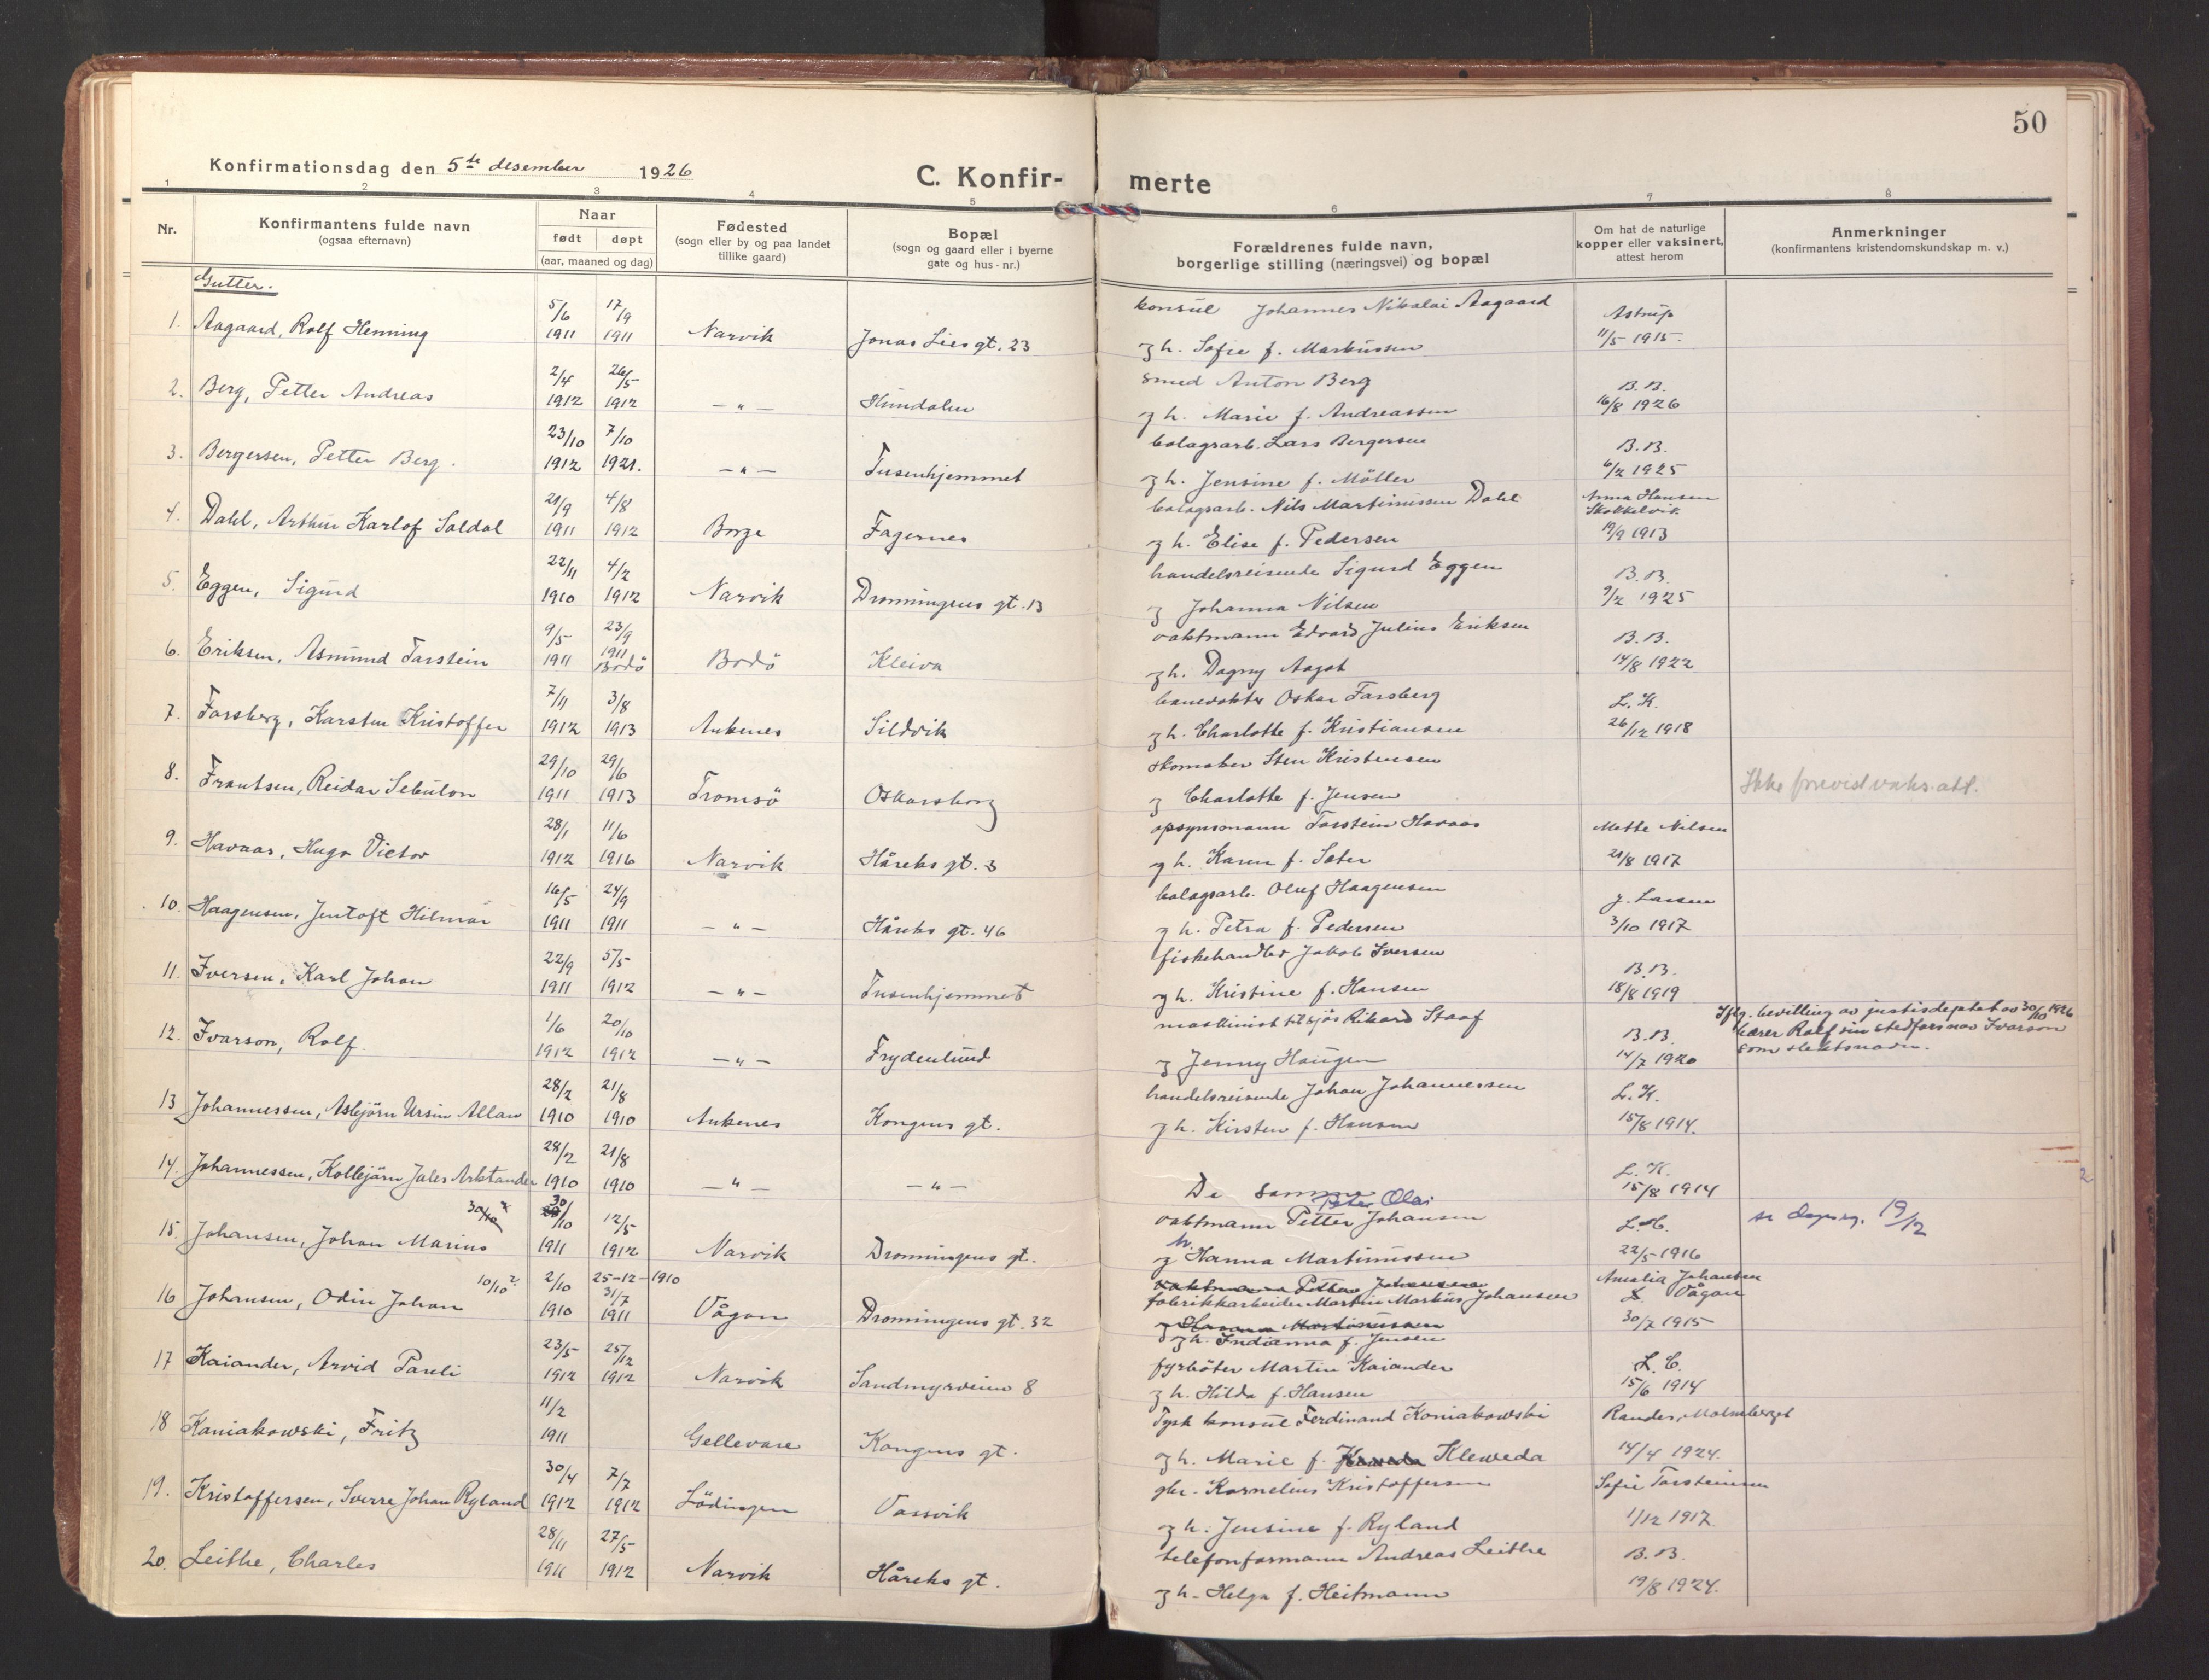 50
Konfirmationsdag den 5te desember 1926
C. Konfir- merte
1 2 3 4 5 6 7 8
Nr.
Konfirmantens fulde navn
(ogsaa efternavn)
Naar
født døpt
(aar, maaned og dag)
Fødested
(sogn eller by og paa landet
tillike gaard)
Bopæl
(sogn og gaard eller i byerne
gate og hus-nr.)
Forældrenes fulde navn,
borgerlige stilling (næringsvei) og bopæl
Om hat de naturlige
kopper eller vaksinert,
attest herom
Anmerkninger
(konfirmantens kristendomskundskap m. v.)
Gutter.
5/6 17/9 konsul Johannes Nikolai Aagaard Astrup
1. Aagaard, Rolf Henning 1911 1911 Narvik Jonas Lies gt. 23 g h. Sofie f. Markussen 11/5 1915.
2/4 26/5 smed Anton Berg B. B.
2. Berg, Petter Andreas 1912 1912 — " — Hundalen g h. Marie f. Andreassen 16/8 1926
23/10 7/10 bolagsarb. Lars Bergersen B. B.
3. Bergersen, Petter Berg. 1912 1921. — " — Tusenhjemmet g h. Jensine f. Möller 6/2 1925
21/9 4/8 bolagsarb. Nils Martinussen Dahl Anna Hansen
Skokkelvik
4. Dahl, Arthur Karlof Soldal 1911 1912 Borge Fagernes g h. Elise f. Pedersen 19/9 1913
22/11 4/2 handelsreisende Sigurd Eggen B. B.
5. Eggen, Sigurd 1910 1912 Narvik Dronningens gt. 13 g Johanna Nilsen 9/2 1925
9/5 23/9 vaktmann Edvard Julius Eriksen B. B.
6. Eriksen, Asmund Torstein 1911 1911 Bodö Bodö Kleiva g h. Dagny Aagot 14/8 1922
7/11 3/8 banevokter Oskar Forsberg L. K.
7. Forsberg, Karsten Kristoffer 1912 1913 Ankenes Sildvik g h. Charlotte f. Kristiansen 26/12 1918
29/10 29/6 skomaker Sten Kristensen
8. Frantsen, Reidar Sebulon 1911 1913 Tromsö Oskarsborg g Charlotte f. Jensen Ikke forevist vaks.att.
28/1 11/6 opsynsmann Torstein Havaas Mette Nilsen
9. Havaas, Hugo Victor 1912 1916 Narvik Håreks gt. 3 g h. Karen f. Sæter 21/8 1917
16/5 24/9 bolagsarb. Oluf Haagensen J. Larsen
10. Haagensen, Jentoft Hilmar 1911 1911 — " — Håreks gt. 46 g h. Petra f. Pedersen 3/10 1917
22/9 5/5 fiskehandler Jakob Iversen B. B.
11. Iversen, Karl Johan 1911 1912 — " — Tusenhjemmet g h. Kristine f. Hansen 18/8 1919
1/6 20/10 maskinist til sjös Rikard Staaf B. B. Iflg. bevilling av justisdeptet av 30/10 1926
bærer Rolf sin stedfars nav Ivarson
som slektsnavn.
12. Ivarson, Rolf. 1912 1912 — " — Frydenlund g Jenny Haugen 14/7 1920
28/2 21/8 handelsreisende Johan Johannessen L. K.
13 Johannessen, Asbjörn Ursin Allan 1910 1910 Ankenes Kongens gt. g h. Kirsten f. Hansen 15/8 1914.
28/2 21/8 L. K.
14. Johannessen, Kollbjörn Jules Arktander 1910 1910 — " — — " — De samme 15/8 1914
2
Peter Olai
30/10 ? 30/10 12/5 vaktmann Petter Johansen L. C. se dagreg. 19/12
15. Johansen, Johan Marius 1911 1912 Narvik Dronningens gt. g h. Hanna Martinussen 22/5 1916
10/10 ? 2/10 25-12-1910 31/7 vaktmann Petter Johansen Amalia Johansen
fabrikkarbeider Martin Markus Johansen Vågan
16 Johansen, Odin Johan 1910 1911 Vågan Dronningens gt. 32 g Hanna Martinussen 30/7 1915
g h. Indianna f. Jensen
23/5 25/12 fyrböter Martin Kaiander L. C.
17 Kaiander, Arvid Pareli 1912 1912 Narvik Sandmyrveien 8 g h. Hilda f. Hansen 15/6 1914
11/2 Tysk konsul Ferdinand Koniakowski Rander, Malmberget
18 Koniakowski, Fritz 1911 Gellevare Kongens gt. g h. Marie f. Kleweda 14/4 1924.
30/4 7/7 gbr. Kornelius Kristoffersen Sofie Torsteinsen
19. Kristoffersen, Sverre Johan Ryland 1912 1912 Lödingen Vassvik g h. Jensine f. Ryland 1/12 1917.
28/11 27/5 telefonformann Andreas Leithe B. B.
20. Leithe, Charles 1911 1912 Narvik Håreks gt. g h. Helga f. Heitmann 19/8 1924.